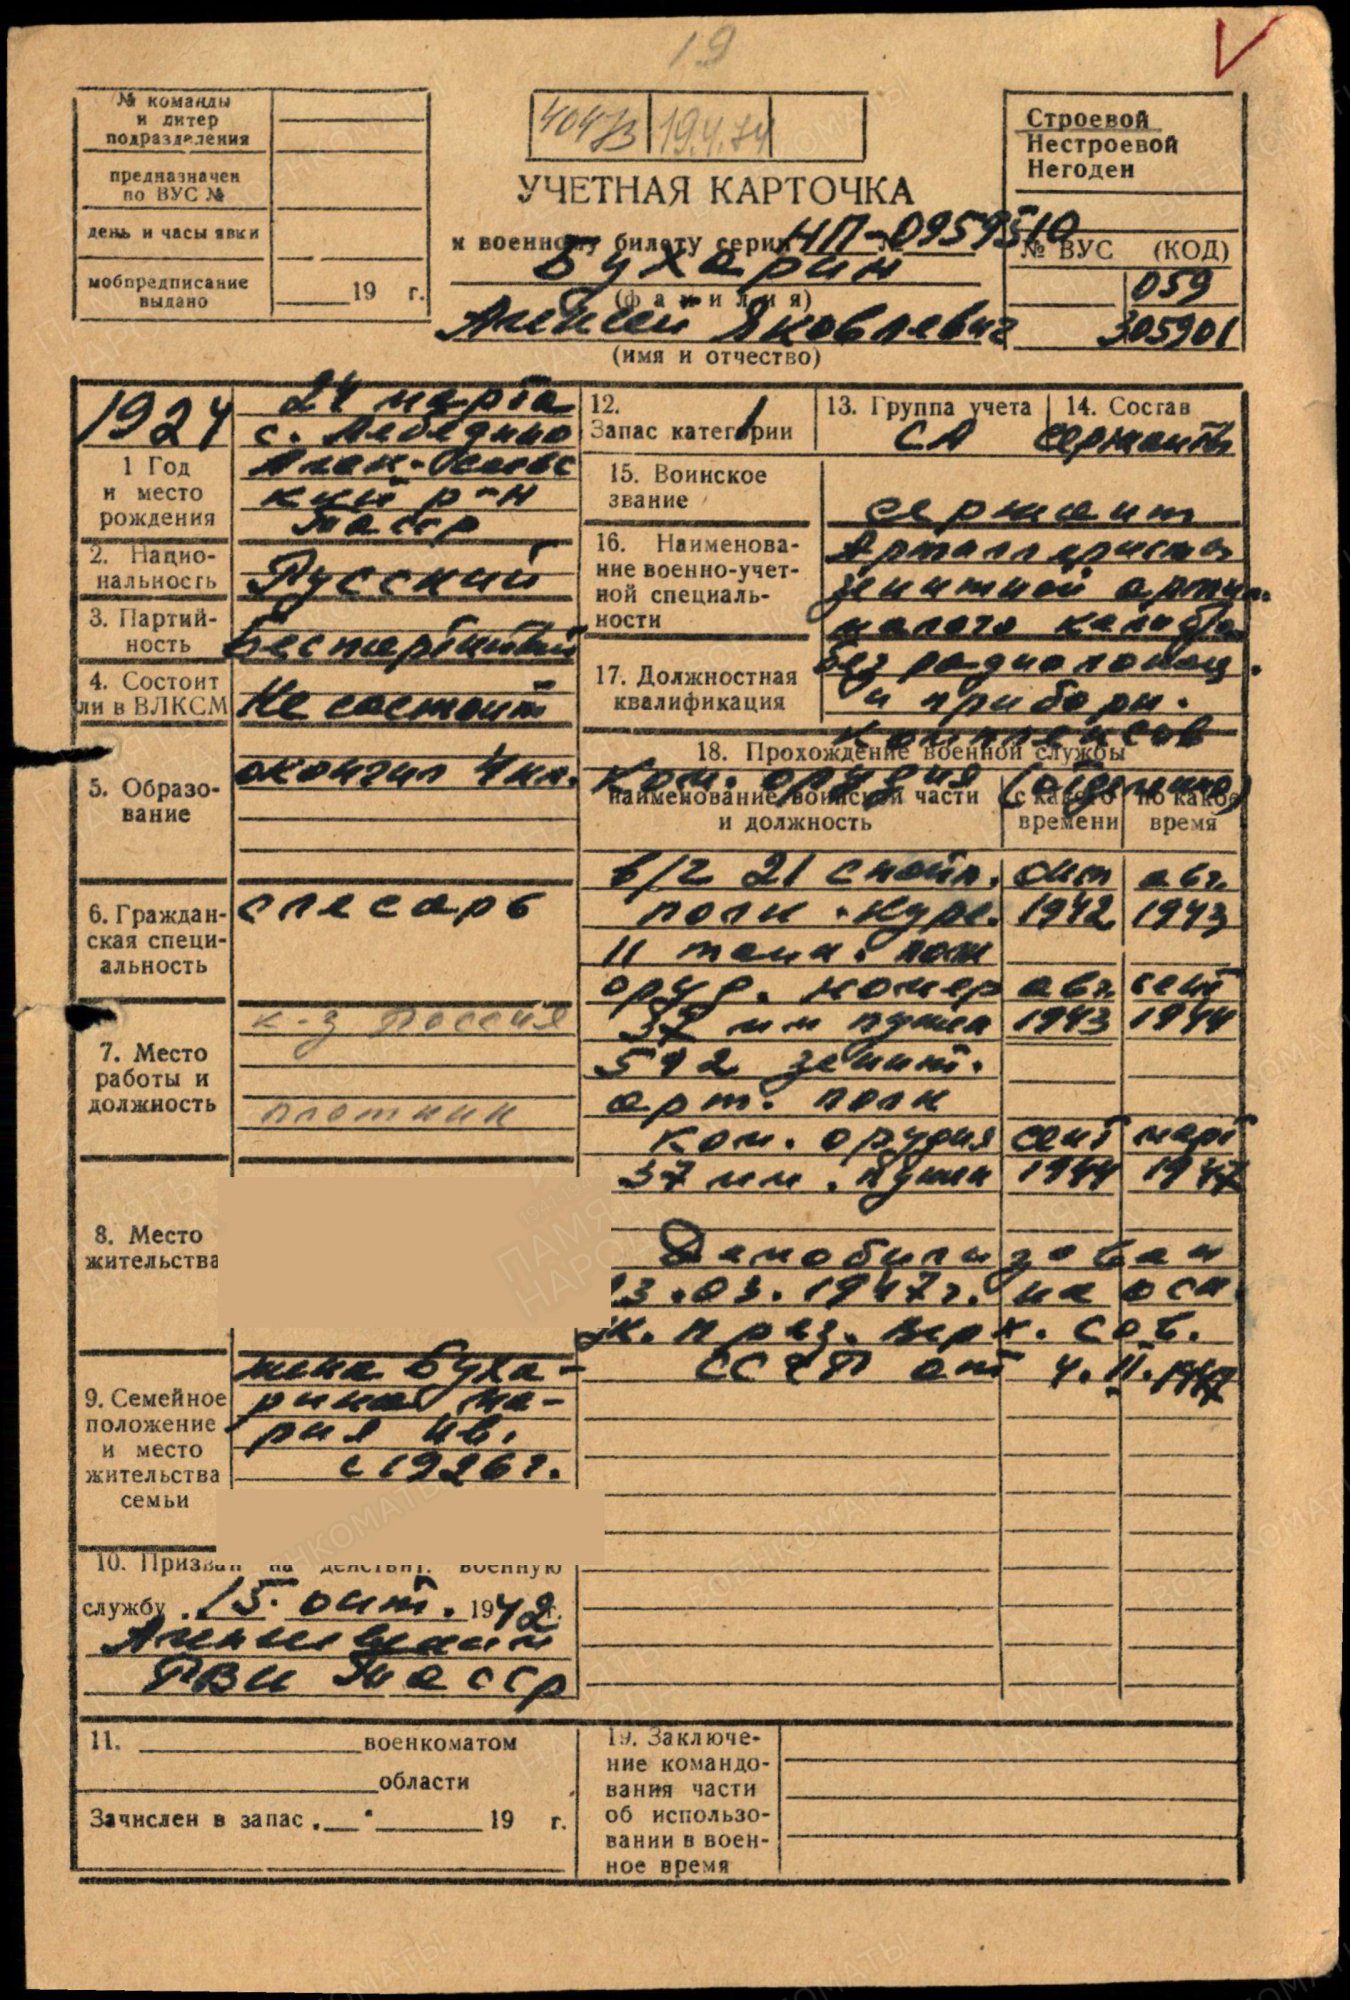 19
№ команды
и литер
подразделения
предназначен
по ВУС №
день и часы явки
мобпредписание
выдано
19 г.
19.4.74
УЧЕТНАЯ КАРТОЧКА
к военному билету серии НП № 0959510
Бухарин
(фамилия)
Алексей Яковлевич
(имя и отчество)
Строевой
Нестроевой
Негоден
№ ВУС (КОД)
059
305901
1924
1 Год
и место
рождения
24 марта
с. Лебедино
Алек-
ский р-н
ТАССР
2. Нацио-
нальность
Русский
3. Партий-
ность
Беспартийный
4. Состоит
ли в ВЛКСМ
Не состоит
5. Образо-
вание
окончил 4 кл.
6. Граждан-
ская специ-
альность
слесарь
7. Место
работы и
должность
к-з Россия
плотник
8. Место
жительства
9. Семейное
положение
и место
жительства
семьи
жена Буха-
рина Ма-
рия Ив.
с 1926 г.
10. Призван на действит. военную
службу 15. окт. 1942 г.
РВК ТАССР
11. военкоматом
области
Зачислен в запас . 19 г.
12.
Запас категории 1
13. Группа учета
СА
14. Состав
сержанты
15. Воинское
звание
сержант
16. Наименова-
ние военно-учет-
ной специаль-
ности
Артиллеристы
зенитной артил.
малого калибра
без радиолокац.
и приборн.
комплексов
17. Должностная
квалификация
Ком. орудия (отделения)
18. Прохождение военной службы
наименование воинской части
и должность
с какого
времени
по какое
время
в/ч 21 снайп. окт авг.
полк . курс. 1942 1943
11 танк. полк
оруд. номер авг. сент
37 мм пушк 1943 1944
592 зенит.
арт. полк
ком. орудия сент март
37 мм. пушк 1944 1947
Демобилизован
03.1947г. на осн.
ук. през. верх. сов.
СССР от 4.II.1947
19. Заключе-
ние командо-
вания части
об использо-
вании в воен-
ное время